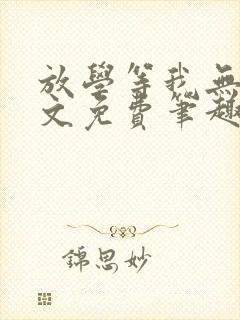 放學等我無
文免費筆趣
錦思妙